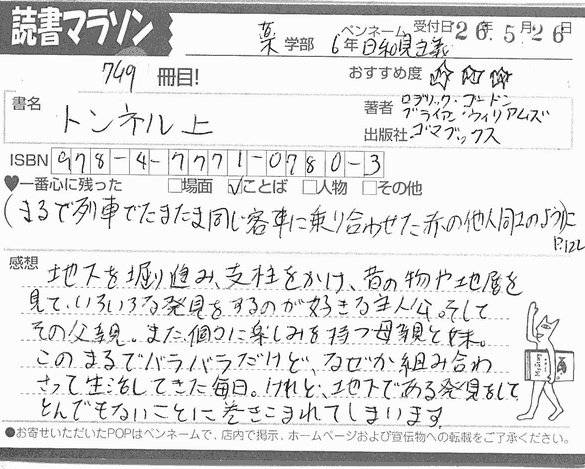 読書マラソン
薬学部 6年 ペンネーム 日和見主義 受付日 26年5月26日
749冊目!
おすすめ度
書名 トンネル 上
著者 ロデリック・ゴードン
ブライアン・ウィリアムズ
出版社 ゴマブックス
ISBN 978-4-7771-0780-3
♥一番心に残った □場面 ☑ことば □人物 □その他
(まるで列車でたまたま同じ客車に乗り合わせた赤の他人同士のように
P.122
感想 地下を掘り進み、支柱をかけ、昔の物や地層を
見て、いろいろな発見をするのが好きな主人公。そして
その父親。また、個々に楽しみを持つ母親と妹。
このまるでバラバラだけど、なぜか組み合わ
さって生活してきた毎日。けれど、地下である発見をして
とんでもないことに巻きこまれてしまいます
●お寄せいただいたPOPはペンネームで、店内で掲示、ホームページおよび宣伝物への転載をご了承ください。